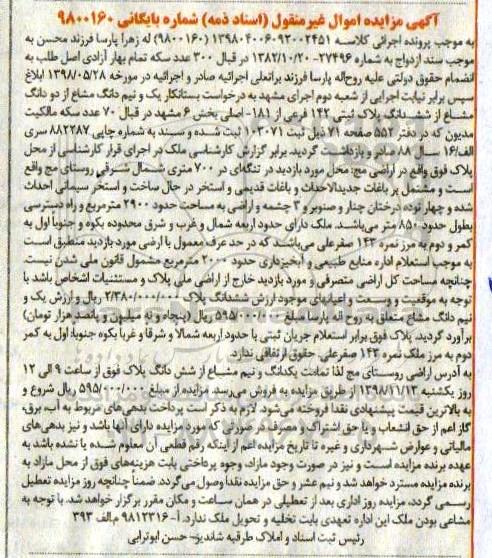 آگهی مزایده اموال غیرمنقول (اسناد ذمه) شماره بایگانی ۹۸۰۰۱۶۰
به موجب پرونده اجرائی کلاسه ۱۳۹۸۰۴۰۰۶۰۹۳۰۰۲۴۵۱ (۹۸۰۰۱۶۰) له زهرا پارسا فرزند محسن به
موجب سند ازدواج به شماره ۲۷۴۹۶-۱۳۸۲/۱۰/۲۰ در قبال ۳۰۰ عدد سکه تمام بهار آزادی اصل طلب به
انضمام حقوق دولتی علیه روح‌اله پارسا فرزند براتعلی اجرائیه صادر و اجرائیه در مورخه ۱۳۹۸/۰۵/۲۸ ابلاغ
سپس برابر نیابت اجرایی از شعبه دوم اجرای مشهد به درخواست بستانکار یک و نیم دانگ مشاع از دو دانگ
مشاع از ششدانگ پلاک ثبتی ۱۴۲ فرعی از ۱۸۱- اصلی بخش ۶ مشهد در قبال ۷۰ عدد سکه مالکیت
مدیون که در دفتر ۵۵۲ صفحه ۷۱ ذیل ثبت ۱۰۳۰۷۱ ثبت شده و سند به شماره چاپی ۸۸۲۲۸۷ سری
الف/۱۶ سال ۸۸ صادر و بازداشت گردید. برابر گزارش کارشناسی ملک در اجرای قرار کارشناسی از محل
پلاک فوق واقع در اراضی مج: محل مورد بازدید در تنگه‌ای در ۷۰۰ متری شمال شرقی روستای مج واقع
است و مشتمل بر باغات جدیدالاحداث و باغات قدیمی و استخر در حال ساخت و استخر سیمانی احداث
شده و چهار توده درختان چنار و صنوبر و ۳ چشمه و اراضی به مساحت حدود ۲۹۰۰ مترمربع و راه دسترسی
بطول حدود ۸۵۰ متر می‌باشند. ملک دارای حدود اربعه شمال و غرب و شرق محدوده بکوه و جنوبا اول به
کمر و دوم به مرز نمره ۱۴۳ صفرعلی می‌باشند که در حد عرف معمول با ارضی مورد بازدید منطبق است
به موجب استعلام اداره منابع طبیعی و آبخیزداری حدود ۲۰۰۰ مترمربع مشمول قانون ملی شدن نیست.
چنانچه مساحت کل اراضی متصرفی و مورد بازدید خارج از اراضی ملی پلاک و مستثنیات اشخاص باشد با
توجه به موقعیت و وسعت و اعیانهای موجود ارزش ششدانگ پلاک ۲/۳۸۰/۰۰۰/۰۰۰ ریال و ارزش یک و
نیم دانگ مشاع متعلق به روح اله پارسا مبلغ ۵۹۵/۰۰۰/۰۰۰ ریال (پنجاه و نه میلیون و پانصد هزار تومان)
برآورد گردید. پلاک فوق برابر استعلام جریان ثبتی با حدود اربعه شمالا و شرقا و غربا بکوه جنوبا: اول به کمر
دوم به مرز ملک نمره ۱۴۳ صفرعلی. حقوق ارتفاقی ندارد.
به آدرس اراضی روستای مج لذا تمامت یکدانگ و نیم مشاع از شش دانگ پلاک فوق از ساعت ۹ الی ۱۲
روز یکشنبه ۱۳۹۸/۱۱/۱۳ از طریق مزایده به فروش می‌رسد. مزایده از مبلغ ۵۹۵/۰۰۰/۰۰۰ ریال شروع و
به بالاترین قیمت پیشنهادی نقدا فروخته می‌شود. لازم به ذکر است پرداخت بدهی‌های مربوط به آب، برق،
گاز اعم از حق انشعاب و یا حق اشتراک و مصرف در صورتی که مورد مزایده دارای آنها باشد و نیز بدهی‌های
مالیاتی و عوارض شهرداری و غیره تا تاریخ مزایده اعم از اینکه رقم قطعی آن معلوم شده یا نشده باشد به
عهده برنده مزایده است و نیز در صورت وجود مازاد، وجوه پرداختی بابت هزینه‌های فوق از محل مازاد به
برنده مزایده مسترد خواهد شد و نیم عشر و حق مزایده نقدا وصول می‌گردد. ضمنا چنانچه روز مزایده تعطیل
رسمی گردد، مزایده روز اداری بعد از تعطیلی در همان ساعت و مکان مقرر برگزار خواهد شد. با توجه به
مشاعی بودن ملک این اداره تعهدی بابت تخلیه و تحویل ملک ندارد. آ- ۹۸۱۲۳۱۶ م‌الف ۳۹۳
رئیس ثبت اسناد و املاک طرقبه شاندیز- حسن ابوترابی